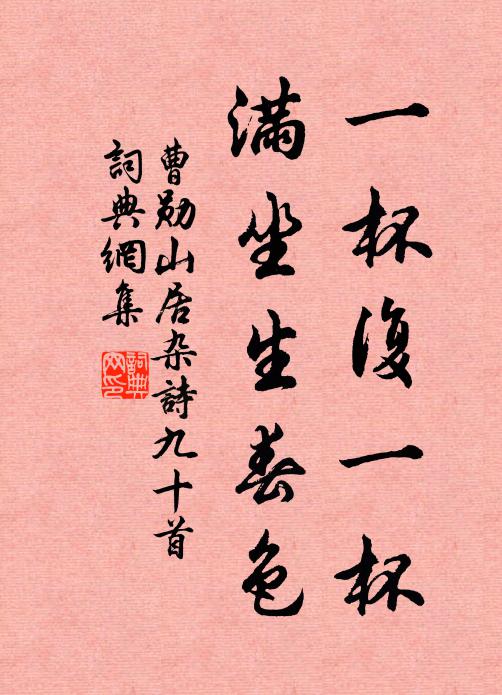 一杯復一杯
滿坐生春色
曹勛山居杂詩九十首
詞典網集
詞典網印